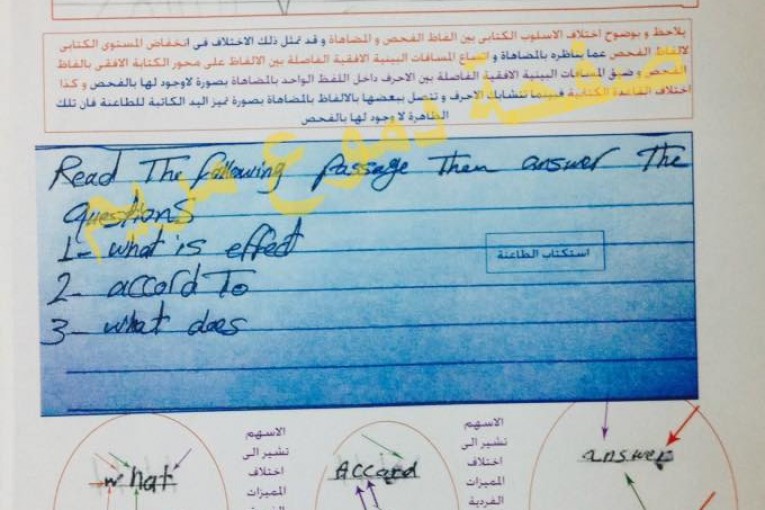 يلاحظ و بوضوح اختلاف الاسلوب الكتابى بين الفاظ الفحص و المضاهاة و قد تمثل ذلك الاختلاف فى انخفاض المستوى الكتابى
لالفاظ الفحص عما يناظره بالمضاهاة و اتساع المسافات البينية الافقية الفاصلة بين الالفاظ على محور الكتابة الافقى بالفاظ
الفحص و ضيق المسافات البينية الافقية الفاصلة بين الاحرف داخل اللفظ الواحد بالمضاهاة بصورة لاوجود لها بالفحص و كذا
اختلاف القاعدة الكتابية فبينما تتشابك الاحرف و تتصل ببعضها بالالفاظ بالمضاهاة بصورة تميز اليد الكاتبة للطاعنة فان تلك
الظاهرة لا وجود لها بالفحص
صفحة دموع مريم
Read The following passage Then answer The
questions
1- what is effect
استكتاب الطاعنة
2- accord To
3- what does
الاسهم
تشير الى
اختلاف
المميزات
الاسهم
تشير الى
اختلاف
المميزات
الفردية
what
Accord
answer